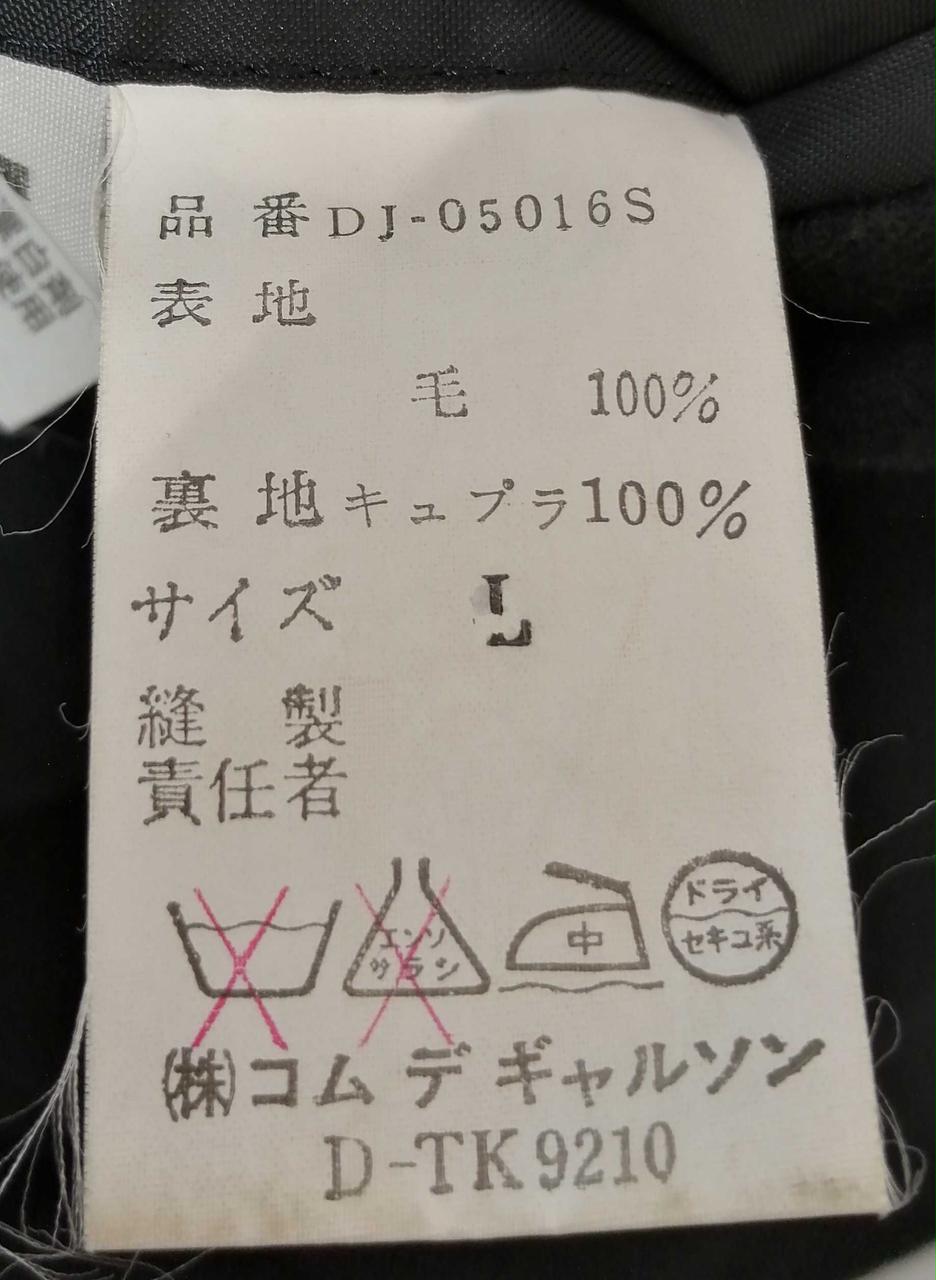 品番 DJ-05016S
表地
毛 100%
裏地 キュプラ 100%
サイズ L
縫製
責任者
エンソ
サラシ
中
ドライ
セキユ系
㈱コム デ ギャルソン
D-TK9210
白剤
使用